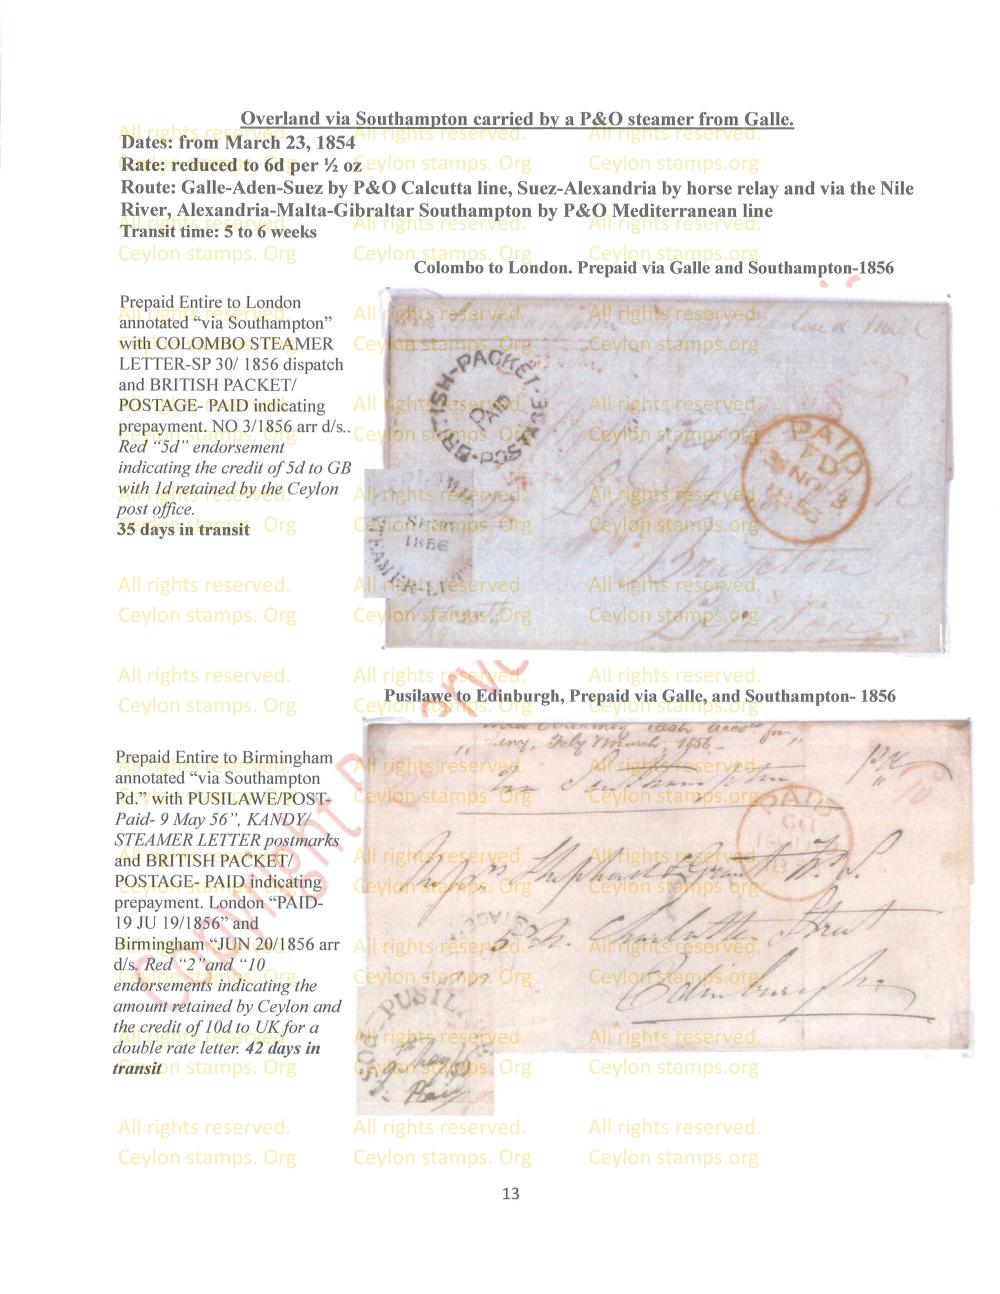 Overland via Southampton carried by a P&O steamer from Galle.
Dates: from March 23, 1854
Rate: reduced to 6d per ½ oz
Route: Galle-Aden-Suez by P&O Calcutta line, Suez-Alexandria by horse relay and via the Nile
River, Alexandria-Malta-Gibraltar Southampton by P&O Mediterranean line
Transit time: 5 to 6 weeks
Colombo to London. Prepaid via Galle and Southampton-1856
Prepaid Entire to London
annotated “via Southampton”
with COLOMBO STEAMER
LETTER-SP 30/ 1856 dispatch
and BRITISH PACKET/
POSTAGE- PAID indicating
prepayment. NO 3/1856 arr d/s..
Red “5d” endorsement
indicating the credit of 5d to GB
with 1d retained by the Ceylon
post office.
35 days in transit
BRITISH-PACKET-POSTAGE
PAID
PAID
FD
3 NO 3
1856
1856
STEAMER-LETTER
Brixton
London
Pusilawe to Edinburgh, Prepaid via Galle, and Southampton- 1856
Prepaid Entire to Birmingham
annotated “via Southampton
Pd.” with PUSILAWE/POST-
Paid- 9 May 56”, KANDY/
STEAMER LETTER postmarks
and BRITISH PACKET/
POSTAGE- PAID indicating
prepayment. London “PAID-
19 JU 19/1856” and
Birmingham “JUN 20/1856 arr
d/s. Red “2”and “10
endorsements indicating the
amount retained by Ceylon and
the credit of 10d to UK for a
double rate letter. 42 days in
transit
via Southampton
PAID
Mess. Shepherd & Grant W. S.
Charlotte Street
Edinburgh
POST-PUSILAWE
9 May 56
Paid
Copyright Reserved
All rights reserved.
Ceylon stamps. Org
All rights reserved.
Ceylon stamps. Org
All rights reserved.
Ceylon stamps.org
13